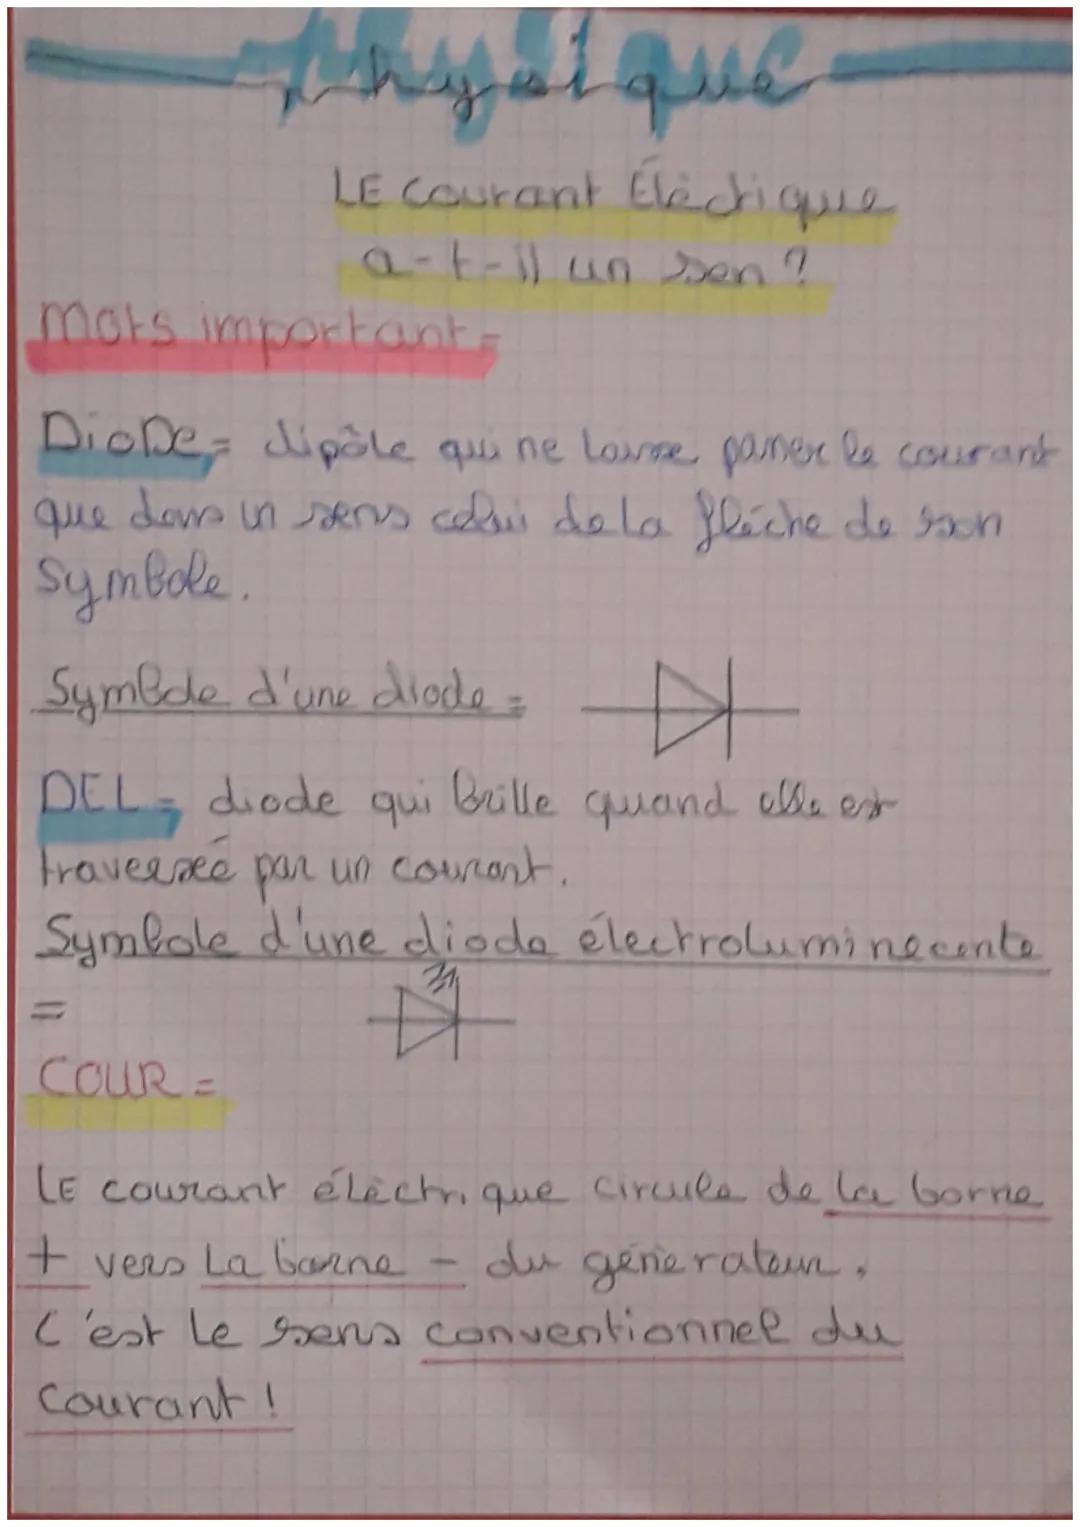 Physique
LE courant Éléctrique
a-t-il un sen ?
mots important =
DioDe = dipôle qui ne laisse passer le courant
que dans un sens celui de la flèche de son
symbole.
Symbole d'une diode =
DEL = diode qui brille quand elle est
traverseé par un courant.
Symbole d'une diode électroluminecente
=
COUR =
LE courant éléctrique circule de la borne
+ vers La borne - du génerateur.
C'est le sens conventionnel du
courant !